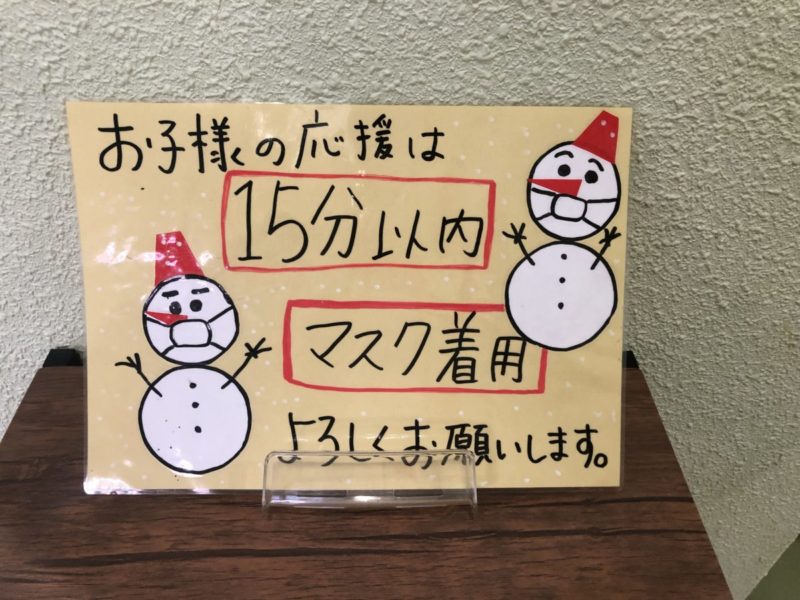 お子様の応援は
15分以内
マスク着用
よろしくお願いします。